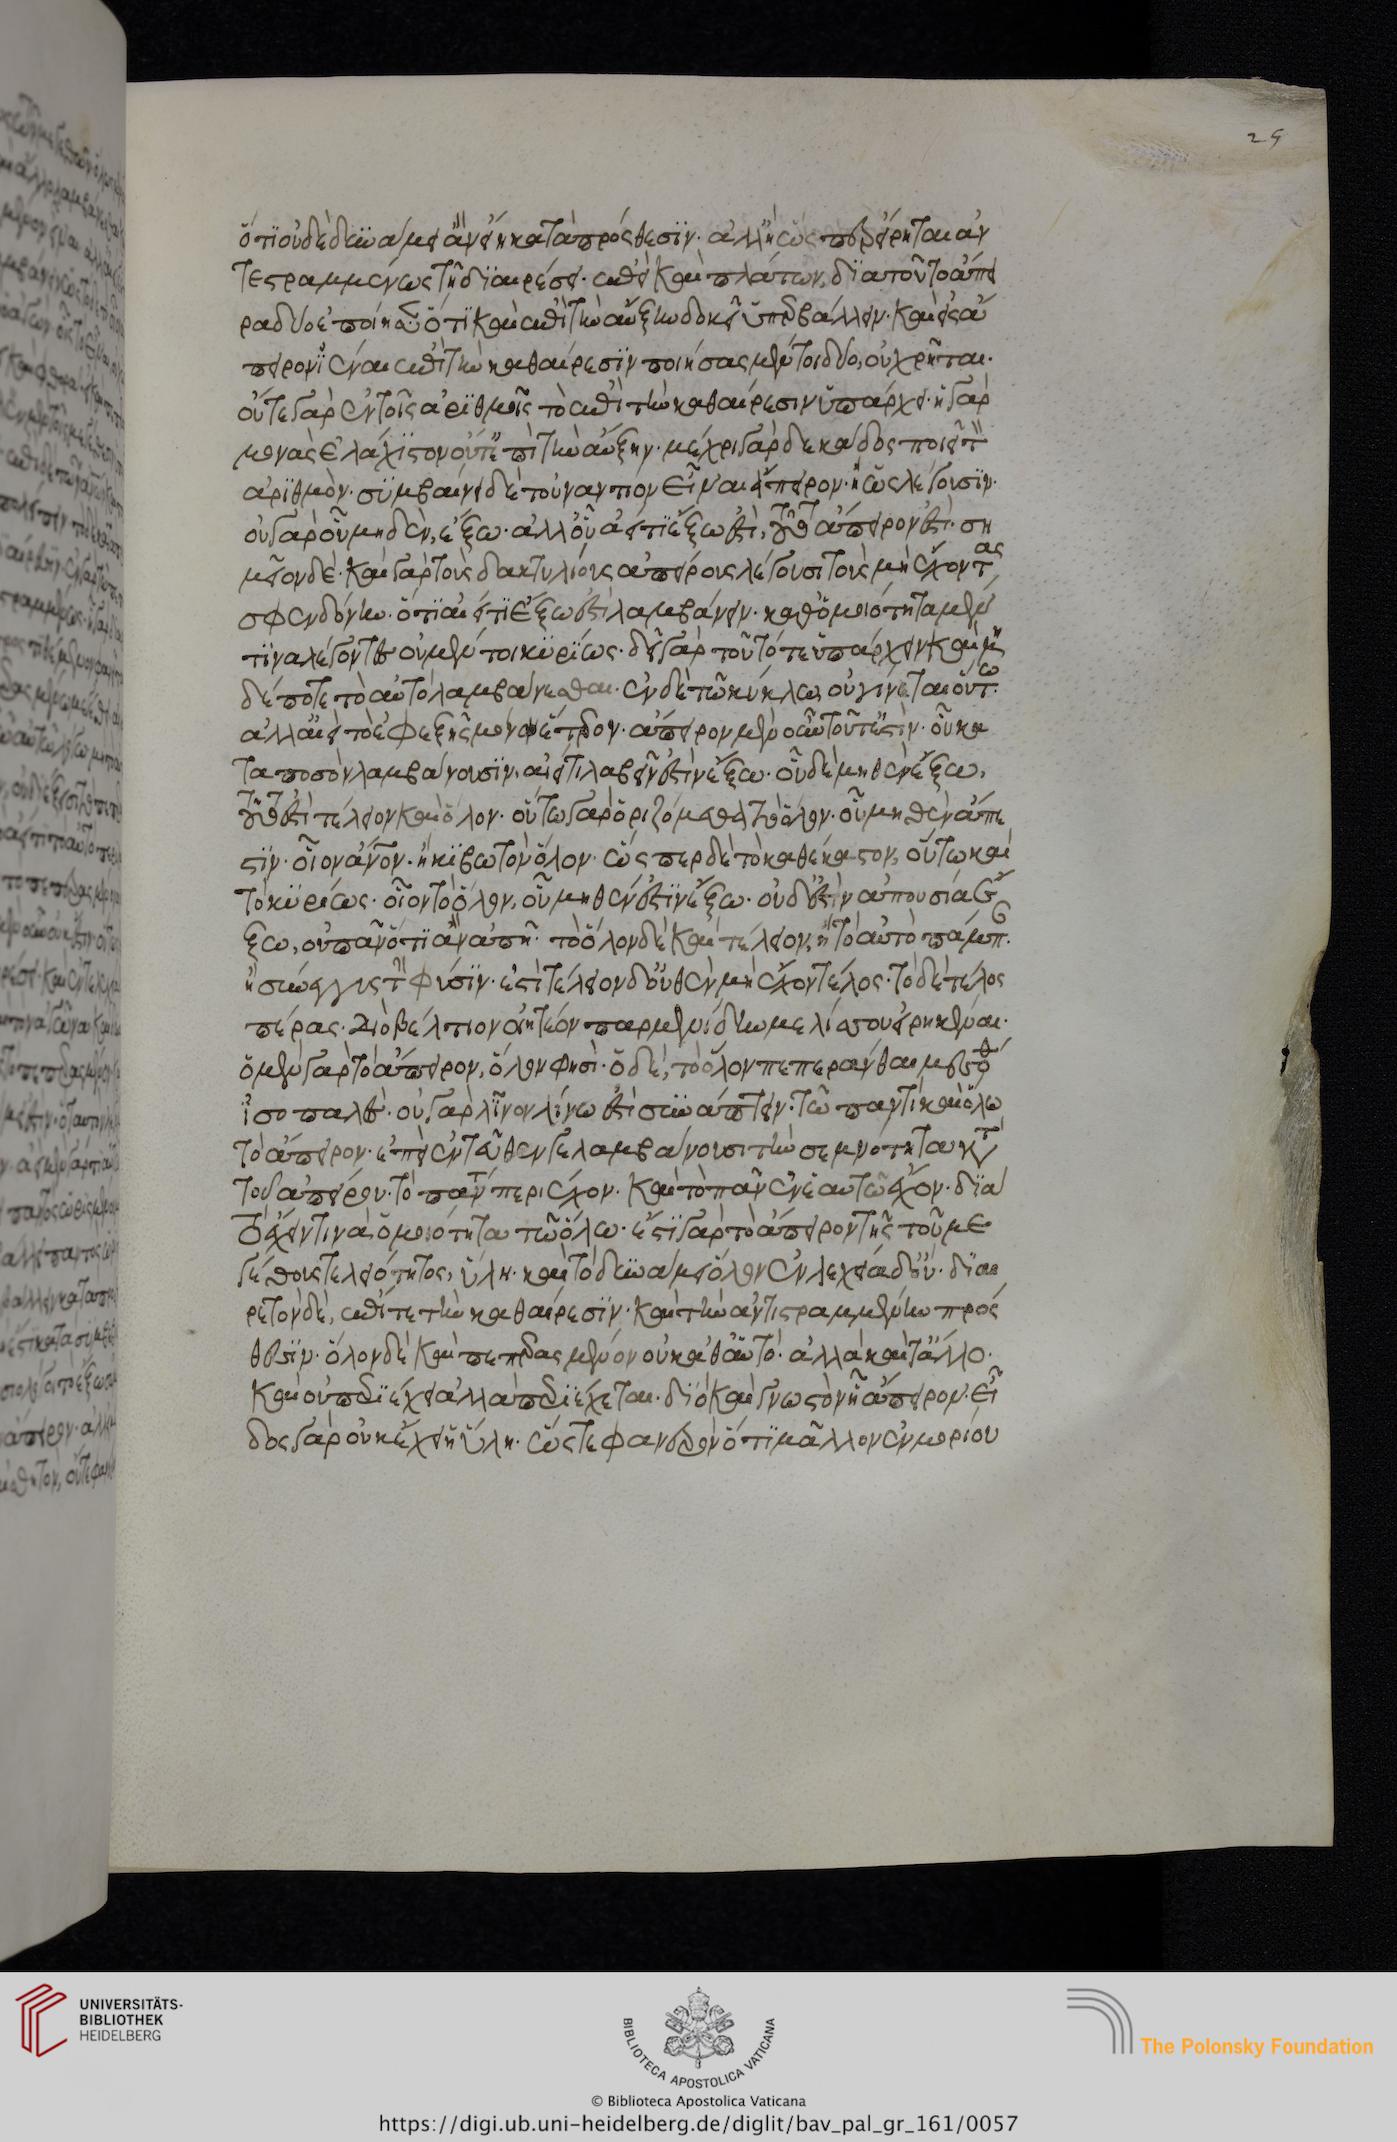 ὅτι οὐδὲ δυνάμει ἂν εἴη κατὰ πρόσθεσιν· ἀλλ' ἢ ὥσπερ εἴρηται ἀν
τεστραμμένως τῇ διαιρέσει· ἐπεὶ καὶ πλάτων, διὰ τοῦτο ἄπει
ρα δύο ἐποίησεν ὅτι καὶ ἐπὶ τὴν αὔξην δοκεῖ ὑπερβάλλειν· καὶ εἰς ἄ
πειρον ἰέναι ἐπὶ τὴν καθαίρεσιν ποιήσας μέντοι δύο, οὐ χρῆται·
οὔτε γὰρ ἐν τοῖς ἀριθμοῖς τὸ ἐπὶ τὴν καθαίρεσιν ὑπάρχει· ἡ γὰρ
μονὰς ἐλάχιστον οὔτε ἐπὶ τὴν αὔξην· μέχρι γὰρ δεκάδος ποιεῖ τὸν
ἀριθμὸν· συμβαίνει δὲ τοὐναντίον εἶναι ἄπειρον· ἢ ὡς λέγουσιν·
οὐ γὰρ οὗ μηδὲν, ἔξω· ἀλλ' οὗ ἀεί τι ἔξω ἐστὶ, τοῦτο ἄπειρον ἐστὶ· ση
μεῖον δέ· καὶ γὰρ τοὺς δακτυλίους ἀπείρους λέγουσι τοὺς μὴ ἔχοντας
σφενδόνην· ὅτι αἰεί τι ἔξω ἐστὶ λαμβάνειν· καθ' ὁμοιότητα μέν
τινα λέγοντες οὐ μέν τοι κυρίως· δεῖ γὰρ τοῦτό τε ὑπάρχειν καὶ μη
δέποτε τὸ αὐτὸ λαμβάνεσθαι· ἐν δὲ τῷ κύκλω, οὐ γίνεται οὕτω·
ἀλλ' αἰεὶ τὸ ἐφεξῆς μόνον ἕτερον· ἄπειρον μὲν οὖν τοῦτ' ἔστιν· οὗ κα
τὰ ποσὸν λαμβάνουσιν, αἰεί τι λαβεῖν ἐστὶν ἔξω· οὗ δὲ μηθὲν ἔξω,
τοῦτ' ἐστὶ τέλειον καὶ ὅλον· οὕτω γὰρ ὁριζόμεθα τὸ ὅλον· οὗ μηθὲν ἄπε
στιν· οἷον ἄνθρωπον· ἢ κιβωτὸν ὅλον· ὥσπερ δὲ τὸ καθέκαστον, οὕτω καὶ
τὸ κυρίως· οἷον τὸ ὅλον, οὗ μηθέν ἐστιν ἔξω· οὗ δ' ἐστὶν ἀπουσία ἔ
ξω, οὐ πᾶν ὅτι ἂν ἀπῇ· τὸ ὅλον δὲ καὶ τέλειον, ἢ τὸ αὐτὸ πάμπαν·
ἢ σύνεγγυς τὴν φύσιν· ἐστὶ τέλειον δ' οὐθὲν μὴ ἔχον τέλος· τὸ δὲ τέλος
πέρας· διὸ βέλτιον οἰητέον παρμενίδην μελίσσου εἰρηκέναι·
ὁ μὲν γὰρ τὸ ἄπειρον, ὅλον φησὶ· ὁ δέ, τὸ ὅλον πεπεράνθαι μεσσόθεν
ἰσοπαλές· οὐ γὰρ λῖνον λίνω ἐστὶ συνάπτειν· τῷ παντὶ καὶ ὅλω
τὸ ἄπειρον· ἐπεὶ ἐντεῦθέν γε λαμβάνουσι τὴν σεμνότητα κατὰ
τοῦ ἀπείρου· τὸ πάντα περιέχον· καὶ τὸ πᾶν ἐν ἑαυτῷ ἔχον· διὰ
τὸ ἔχειν τινὰ ὁμοιότητα τῷ ὅλω· ἔστι γὰρ τὸ ἄπειρον τῆς τοῦ με
γέθους τελειότητος, ὕλη· καὶ τὸ δυνάμει ὅλον ἐντελεχεία δ' οὔ· διαι
ρετὸν δέ, ἐπί τε τὴν καθαίρεσιν· καὶ τὴν ἀντιστραμμένην πρός
θεσιν· ὅλον δὲ καὶ πεπερασμένον οὐ καθ' αὑτό· ἀλλὰ κατ' ἄλλο·
καὶ οὐ περιέχει ἀλλὰ περιέχεται· διὸ καὶ ἄγνωστον ᾗ ἄπειρον· εἶ
δος γὰρ οὐκ ἔχει ἡ ὕλη· ὥστε φανερὸν ὅτι μᾶλλον ἐν μορίου
29
UNIVERSITÄTS-
BIBLIOTHEK
HEIDELBERG
BIBLIOTECA APOSTOLICA VATICANA
The Polonsky Foundation
© Biblioteca Apostolica Vaticana
https://digi.ub.uni-heidelberg.de/diglit/bav_pal_gr_161/0057